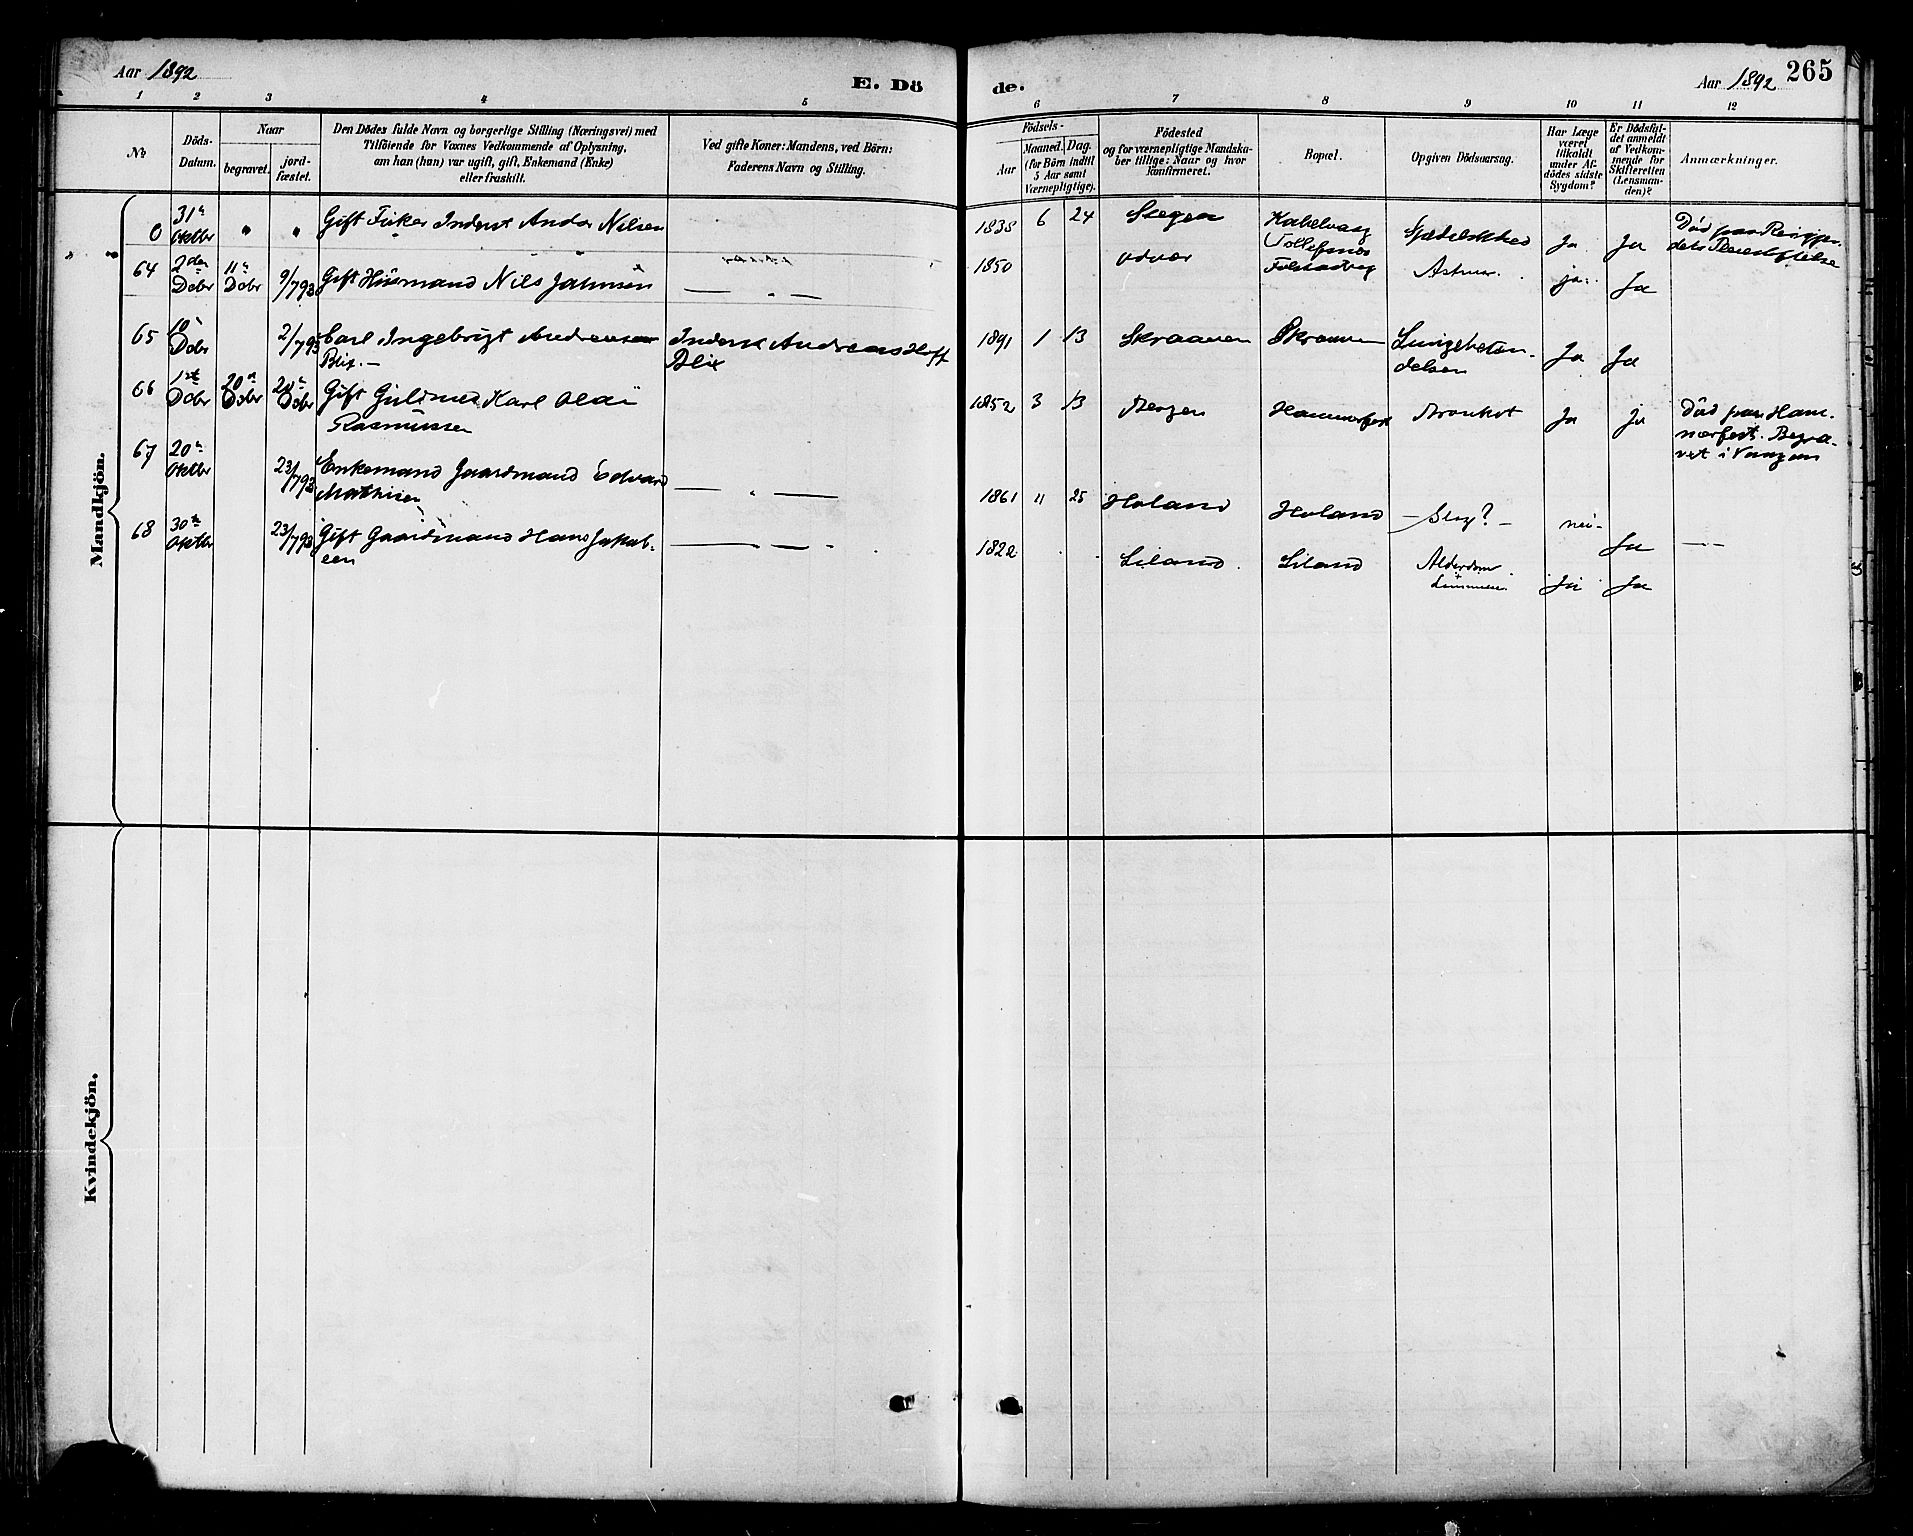 Aar 1892
E. Dö
de.
Aar 1892
265
1 2 3 4 5 6 7 8 9 10 11 12
No
Döds-
Datum.
Naar
begravet.
jord-
fæstet.
Den Dödes fulde Navn og borgerlige Stilling (Næringsvei) med
Tilföiende for Voxnes Vedkommende af Oplysning,
om han (hun) var ugift, gift, Enkemand (Enke)
eller fraskilt.
Ved gifte Koner: Mandens, ved Börn:
Faderens Navn og Stilling.
Födsels-
Aar
Maaned.
Dag.
(for Börn indtil
5 Aar samt
Værnepligtige).
Födested
og for værnepligtige Mandska-
ber tillige: Naar og hvor
konfirmeret.
Bopæl.
Opgiven Dödsaarsag.
Har Læge
været
tilkaldt
under Af-
dödes sidste
Sygdom?
Er Dödsfal-
det anmeldt
af Vedkom-
mende for
Skifteretten
(Lensman-
den)?
Anmærkninger.
Mandkjön.
0 31te Oktbr " " Gift Fisker Inderst Andor Nilsen
1838 6 24 Kabelvaag Ja Ja
64 2den Debr 11te Debr 9/7 93 Gift Husmand Nils
1850 ja Ja
65 10 Debr 2/7 93 Carl Ingebrigt Andreassen
Blix
Inderst Andreas Hoff
Blix
1891 1 13 Skraaven Skraaven Lungebeten-
delsen Ja Ja
66 1ste Debr 20de Debr 20de Debr Gift Guldsmed Karl Olai
Rasmussen
1852 3 13 Bergen Hammerfest Ja Ja Död paa Ham-
merfest. Begra-
vet i Vaagan
67 20de Oktbr 23/7 93 Enkemand Gaardmand Edvard
Mathisen
1861 11 25 Holand Holand — Slag? — nei Ja
68 30te Oktbr 23/7 93 Gift Gaardmand Hans Jakob-
sen
1822 Liland Liland Alderdom Ja Ja
Kvindekjön.